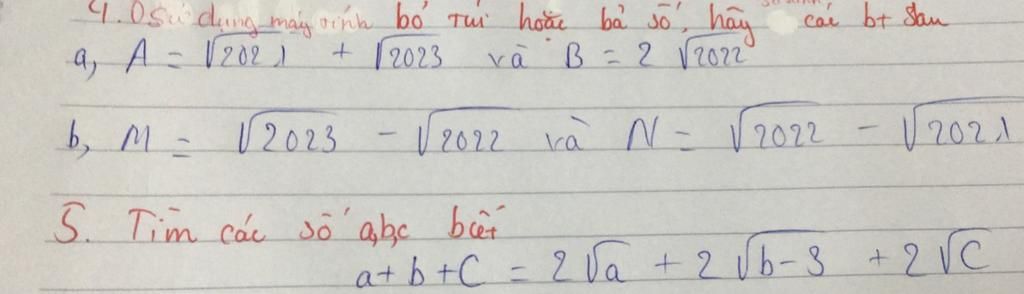 4. 0 sử dụng máy tính bỏ túi hoặc bả số, hãy so sánh các bt sau
a, A = √2021 + √2023 và B = 2 √2022
b, M = √2023 - √2022 và N = √2022 - √2021
5. Tìm các số a,b,c biết
a + b + C = 2√a + 2√b-3 + 2√C